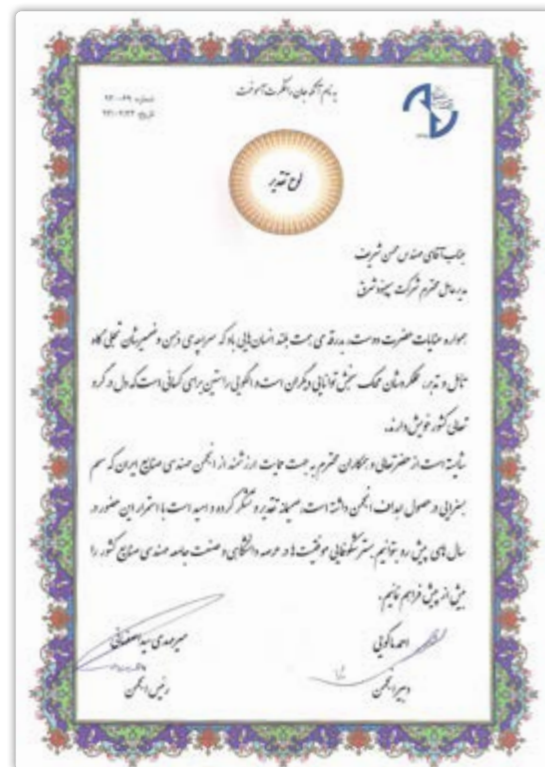 به نام آنکه جان را فکرت آموخت
شماره: ۹۳۰۰۶۹
تاریخ: ۹۳/۰۲/۲۳
لوح تقدیر
جناب آقای مهندس حسن شریف
مدیرعامل محترم شرکت سیمند شرق
همواره عنایات حضرت دوست، بدرقه‌ی همت بلند انسان‌هایی باد که سراچه‌ی ذهن و ضمیرشان تجلی گاه
تامل و تدبر، عملکردشان محک سنجش توانایی دیگران است و الگویی راستین برای کسانی است که دل در گرو
تعالی کشور خویش دارند.
شایسته است از حضرتعالی و همکاران محترم به جهت حمایت ارزشمند از انجمن مهندسی صنایع ایران که سهم
بسزایی در حصول اهداف انجمن داشته است، صمیمانه تقدیر و تشکر کرده و امید است با استمرار این حضور در
سال های پیش رو بتوانیم بستر شکوفایی موفقیت ها در عرصه دانشگاهی و صنعت جامعه مهندسی صنایع کشور را
بیش از پیش فراهم نمائیم.
احمد ماکویی
دبیر انجمن
میرمهدی سیداصفهانی
رئیس انجمن